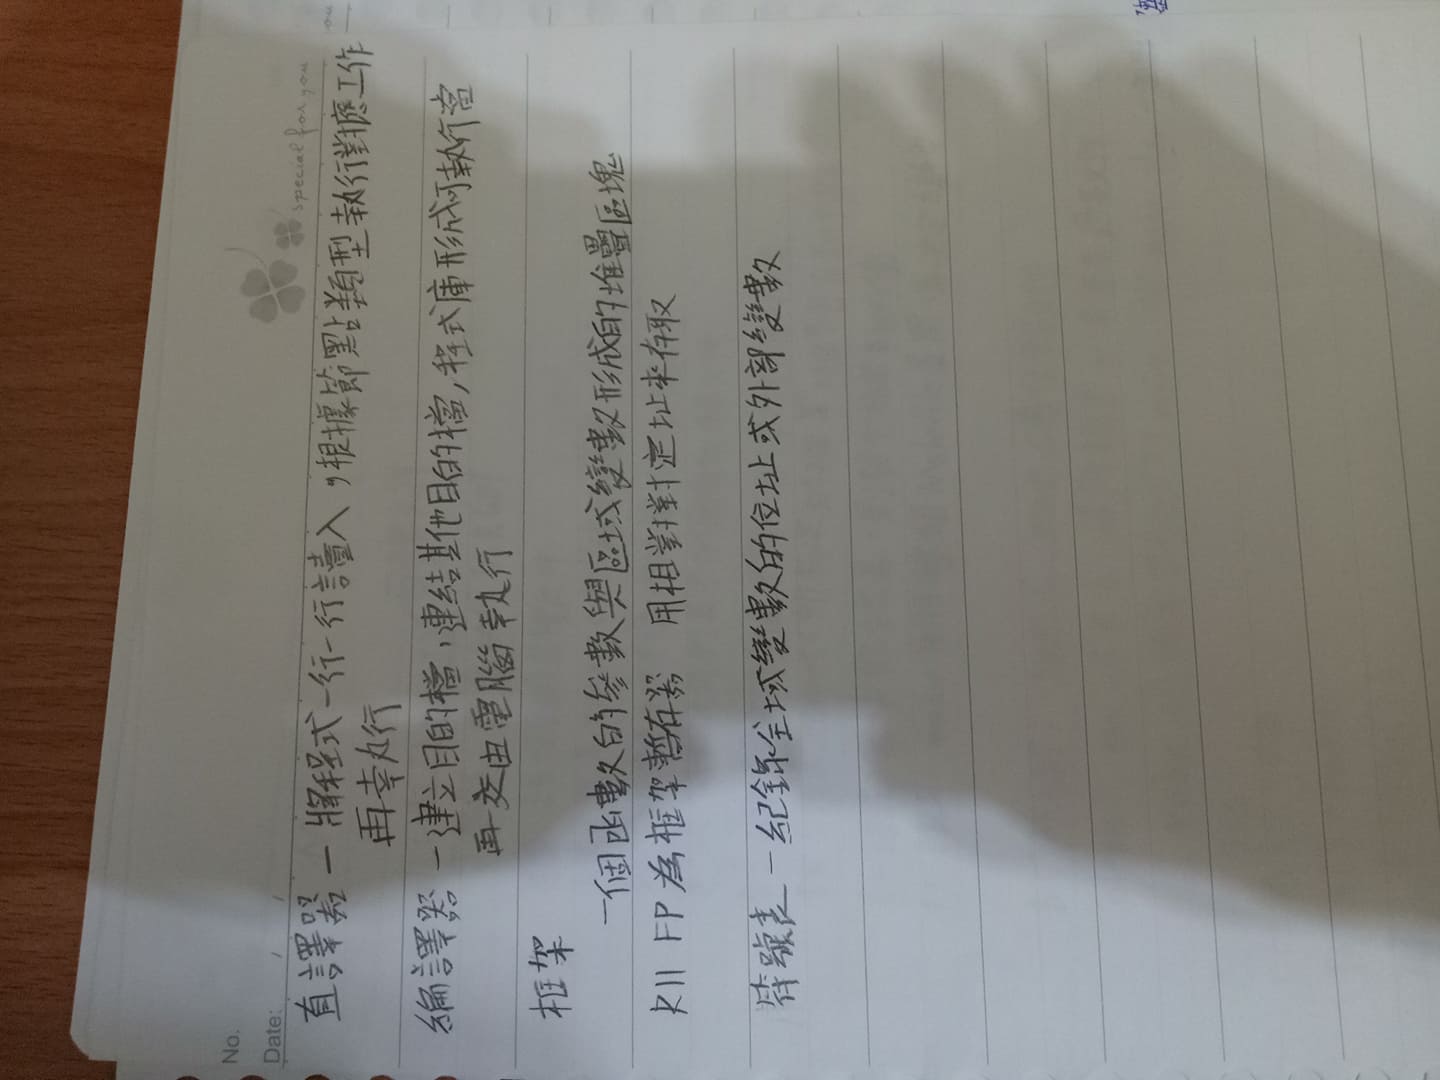 No.
Date: / /
special for you
直譯器 — 將程式一行一行讀入，根據節點類型執行對應工作
再執行
編譯器 — 建立目的檔，連結其他目的檔，程式庫形成可執行檔
再交由電腦執行
框架
一個函數的參數與區域變數形成的堆疊區塊
R11 FP 為框架暫存器 用相對定址來存取
符號表 — 紀錄全域變數的位址或外部變數